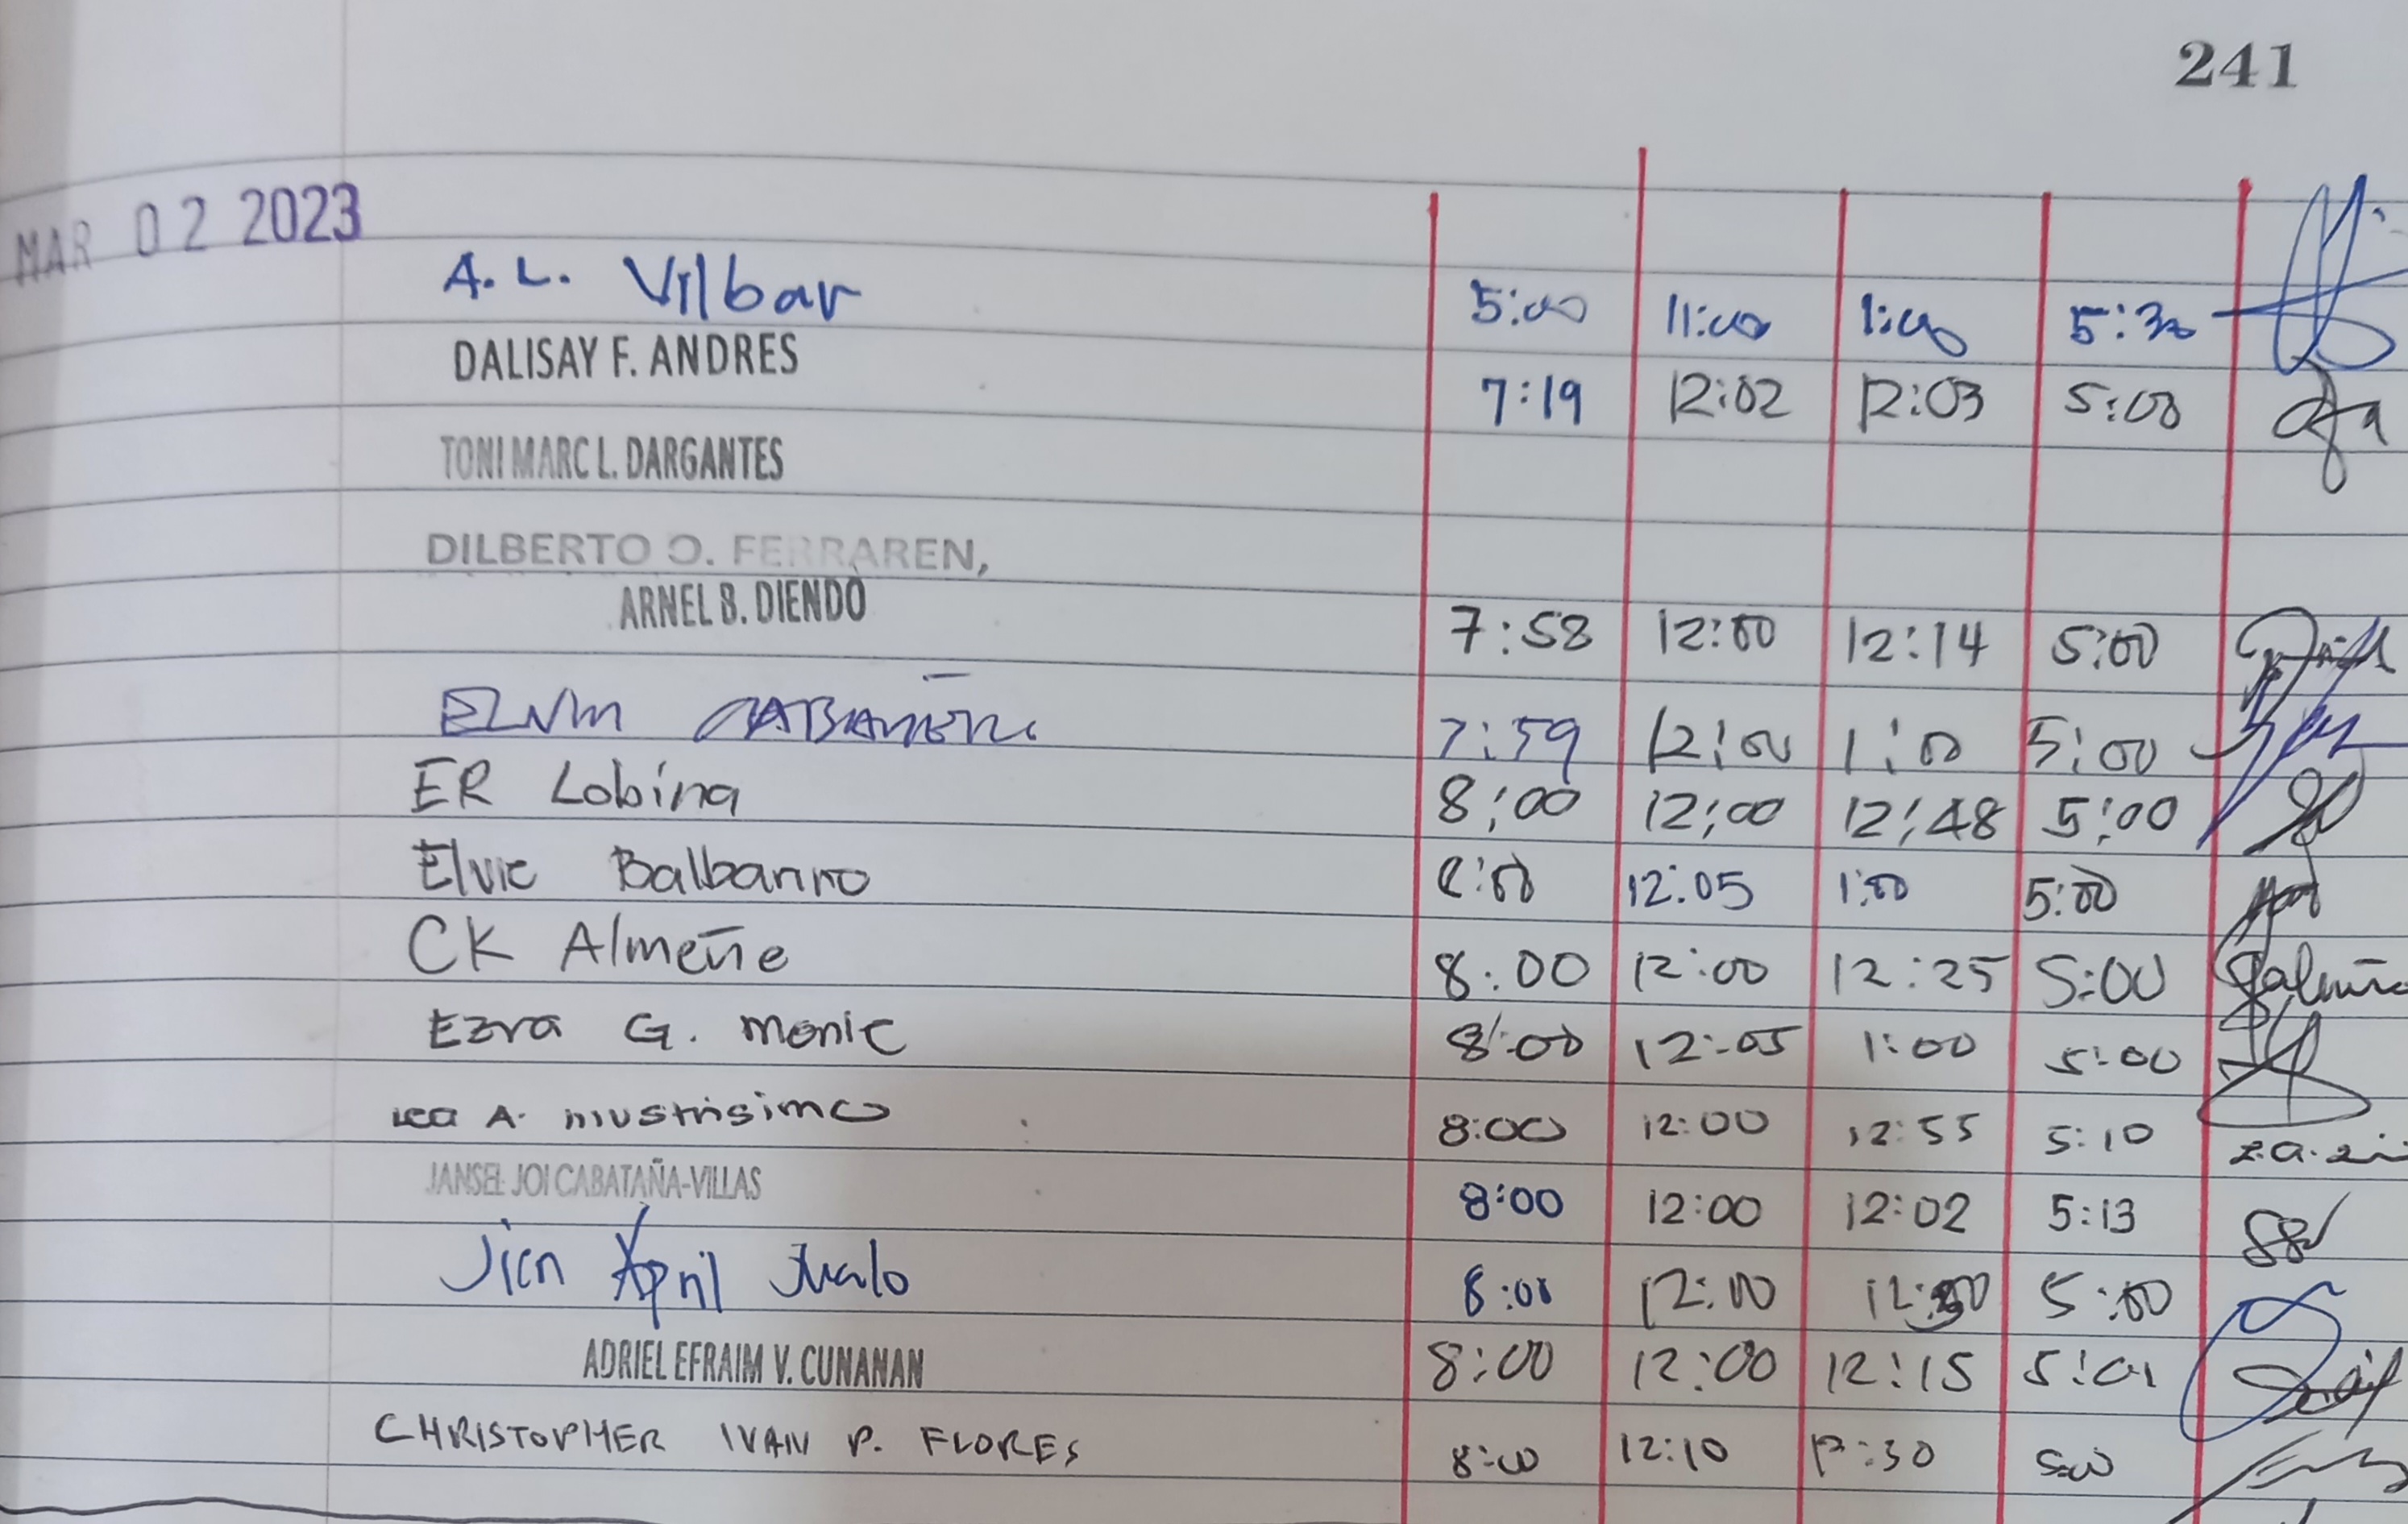 241
MAR 02 2023
A. L. Vilbar 5:00 11:00 1:00 5:30
DALISAY F. ANDRES 7:19 12:02 12:03 5:00
TONI MARC L. DARGANTES
DILBERTO O. FERRAREN,
ARNEL B. DIENDO 7:58 12:00 12:14 5:00
7:59 12:00 1:00 5:00
ER Lobina 8:00 12:00 12:48 5:00
Elvie Balbarino 8:00 12:05 1:00 5:00
CK Almeñe 8:00 12:00 12:25 5:00
Ezra G. Monie 8:00 12:05 1:00 5:00
A. 8:00 12:00 12:55 5:10
JANSEL JOI CABATAÑA-VILLAS 8:00 12:00 12:02 5:13
April 12:00 5:00
ADRIEL EFRAIM V. CUNANAN 8:00 12:00 12:15 5:01
CHRISTOPHER IVAN P. FLORES 8:00 12:10 12:30 5:00